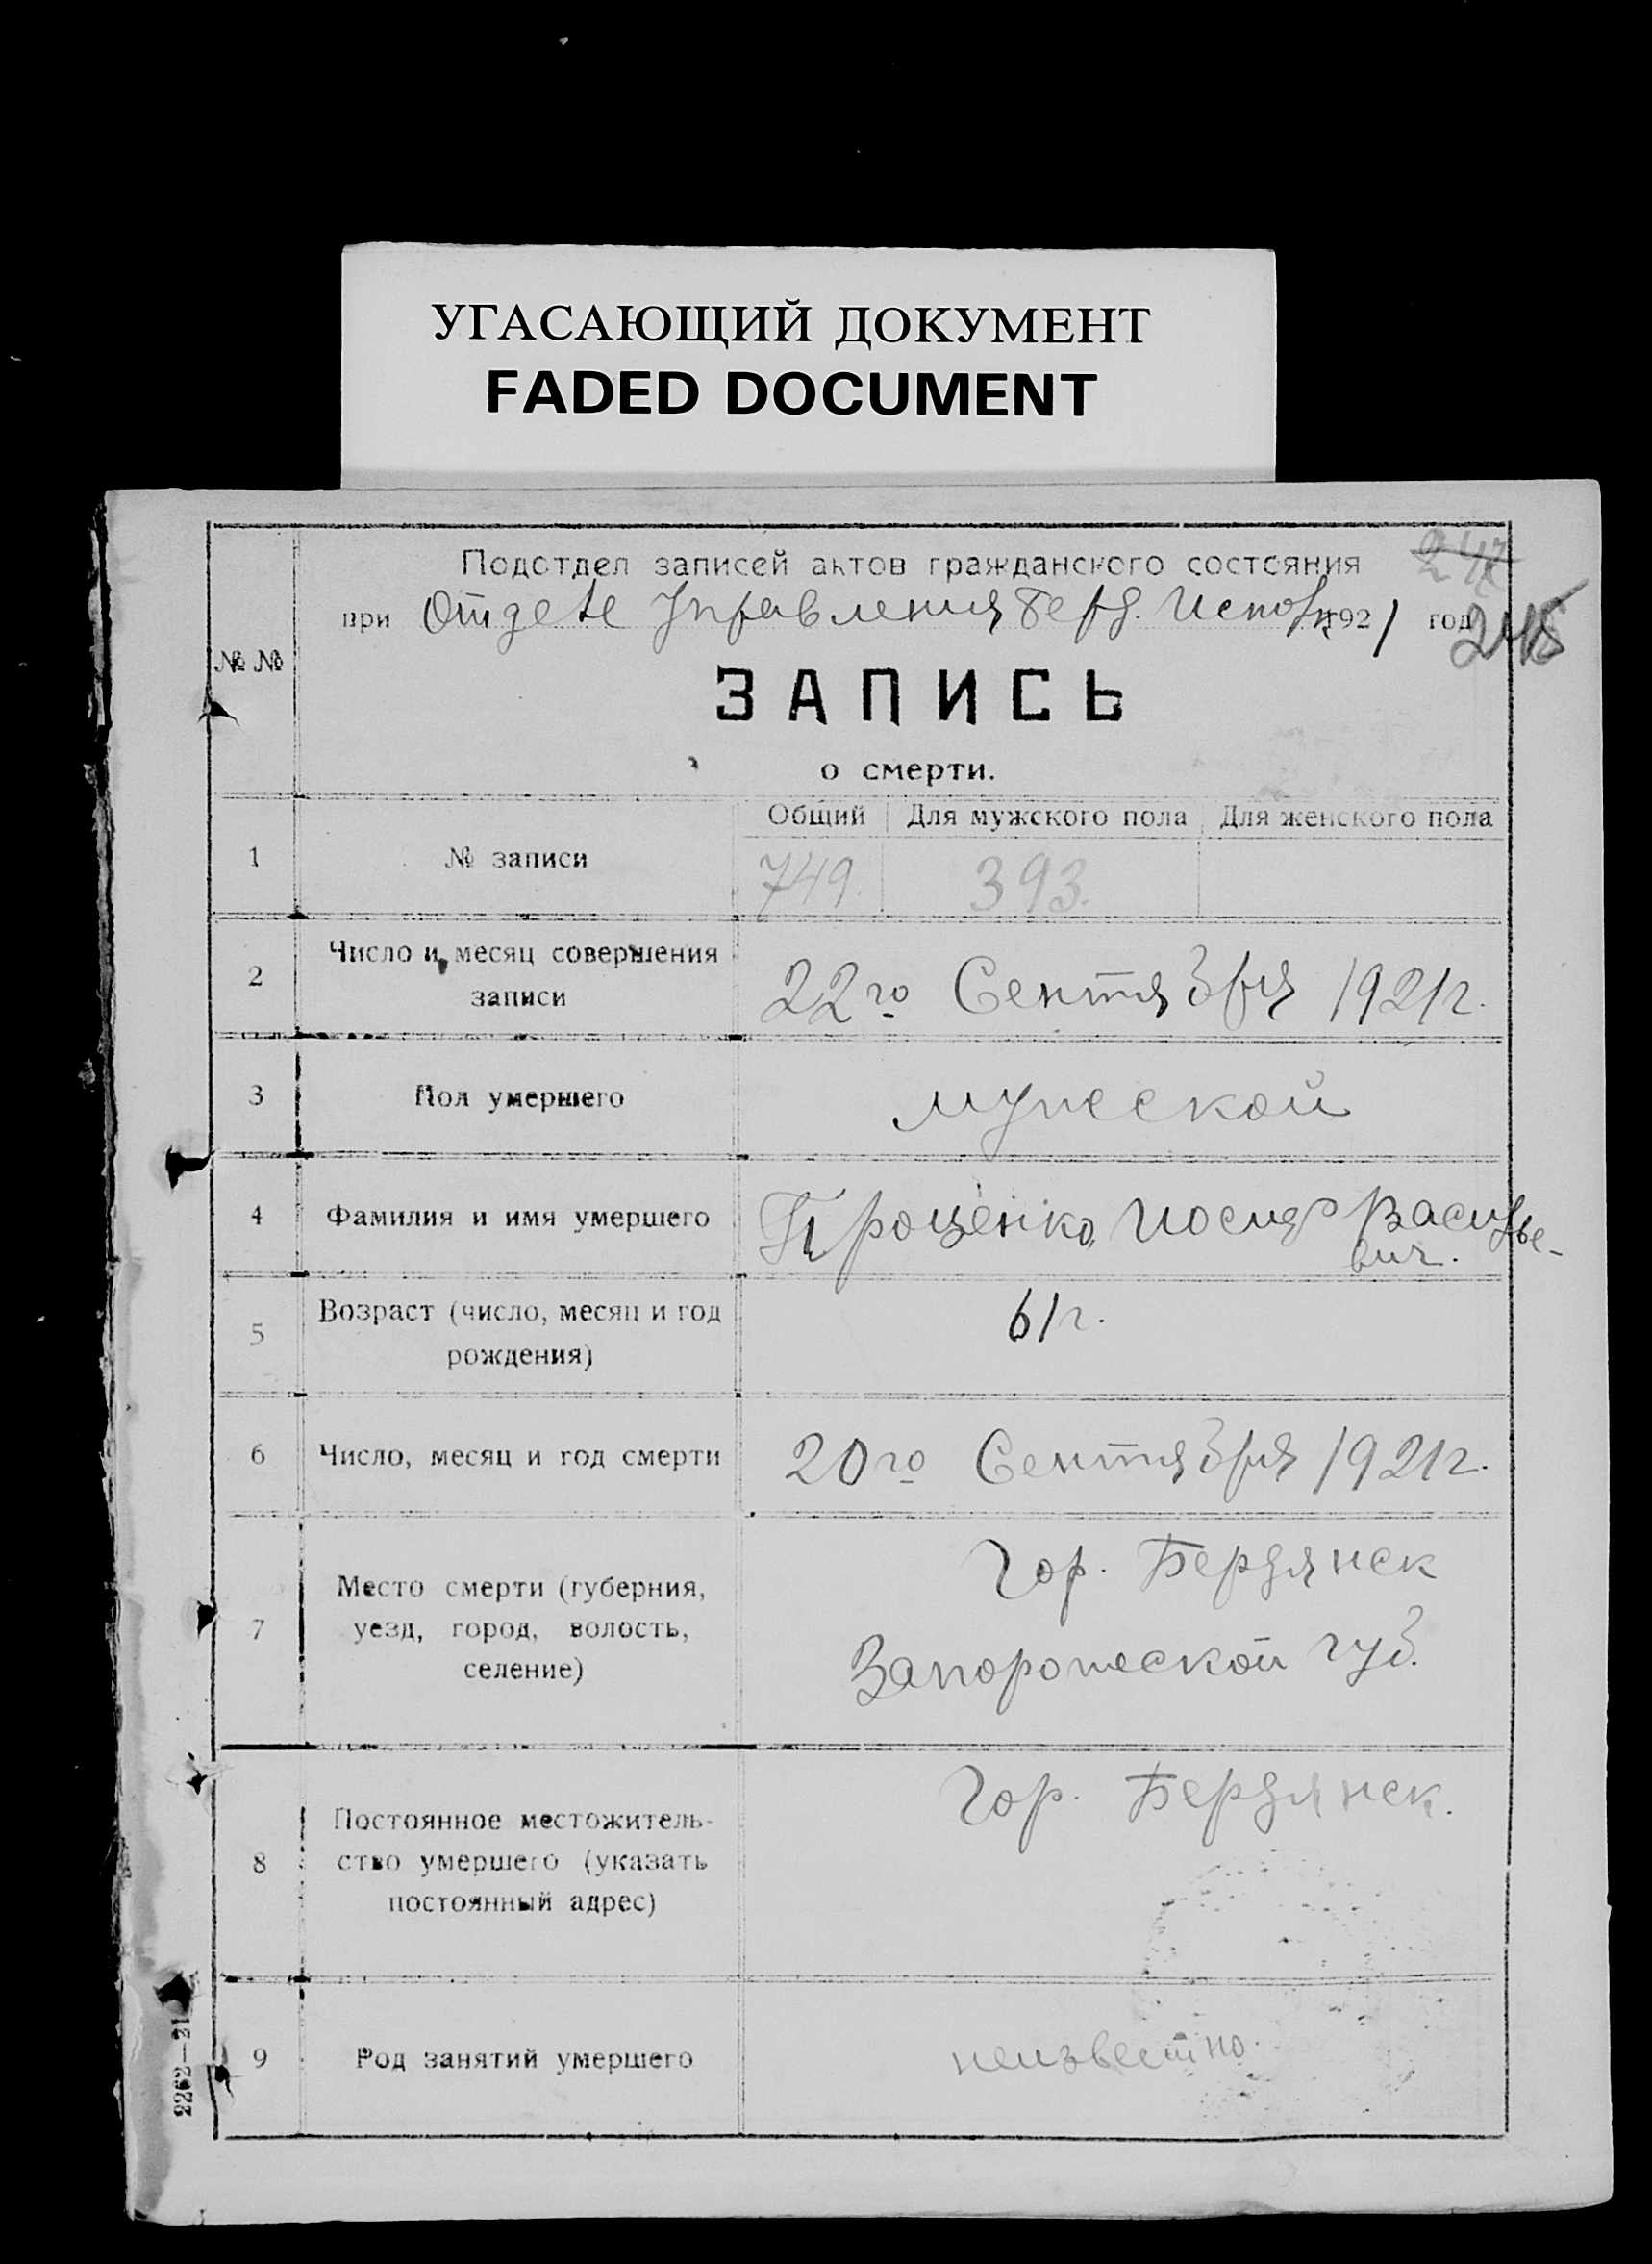 УГАСАЮЩИЙ ДОКУМЕНТ
FADED DOCUMENT
Подотдел записей актов гражданского состояния
при Отделе Управления Берд. Исполк 1921 год
№ №
ЗАПИСЬ
о смерти.
Общий Для мужского пола Для женского пола
1 № записи 749. 393.
2 Число и месяц совершения
записи
22го Сентября 1921г.
3 Пол умершего мужской
4 Фамилия и имя умершего Проценко, Иосиф Василье-
вич.
5 Возраст (число, месяц и год
рождения)
61г.
6 Число, месяц и год смерти 20го Сентября 1921г.
7 Место смерти (губерния,
уезд, город, волость,
селение)
Гор. Бердянск
Запорожской губ.
8 Постоянное местожитель-
ство умершего (указать
постоянный адрес)
Гор. Бердянск.
9 Род занятий умершего неизвестно.
2262—21